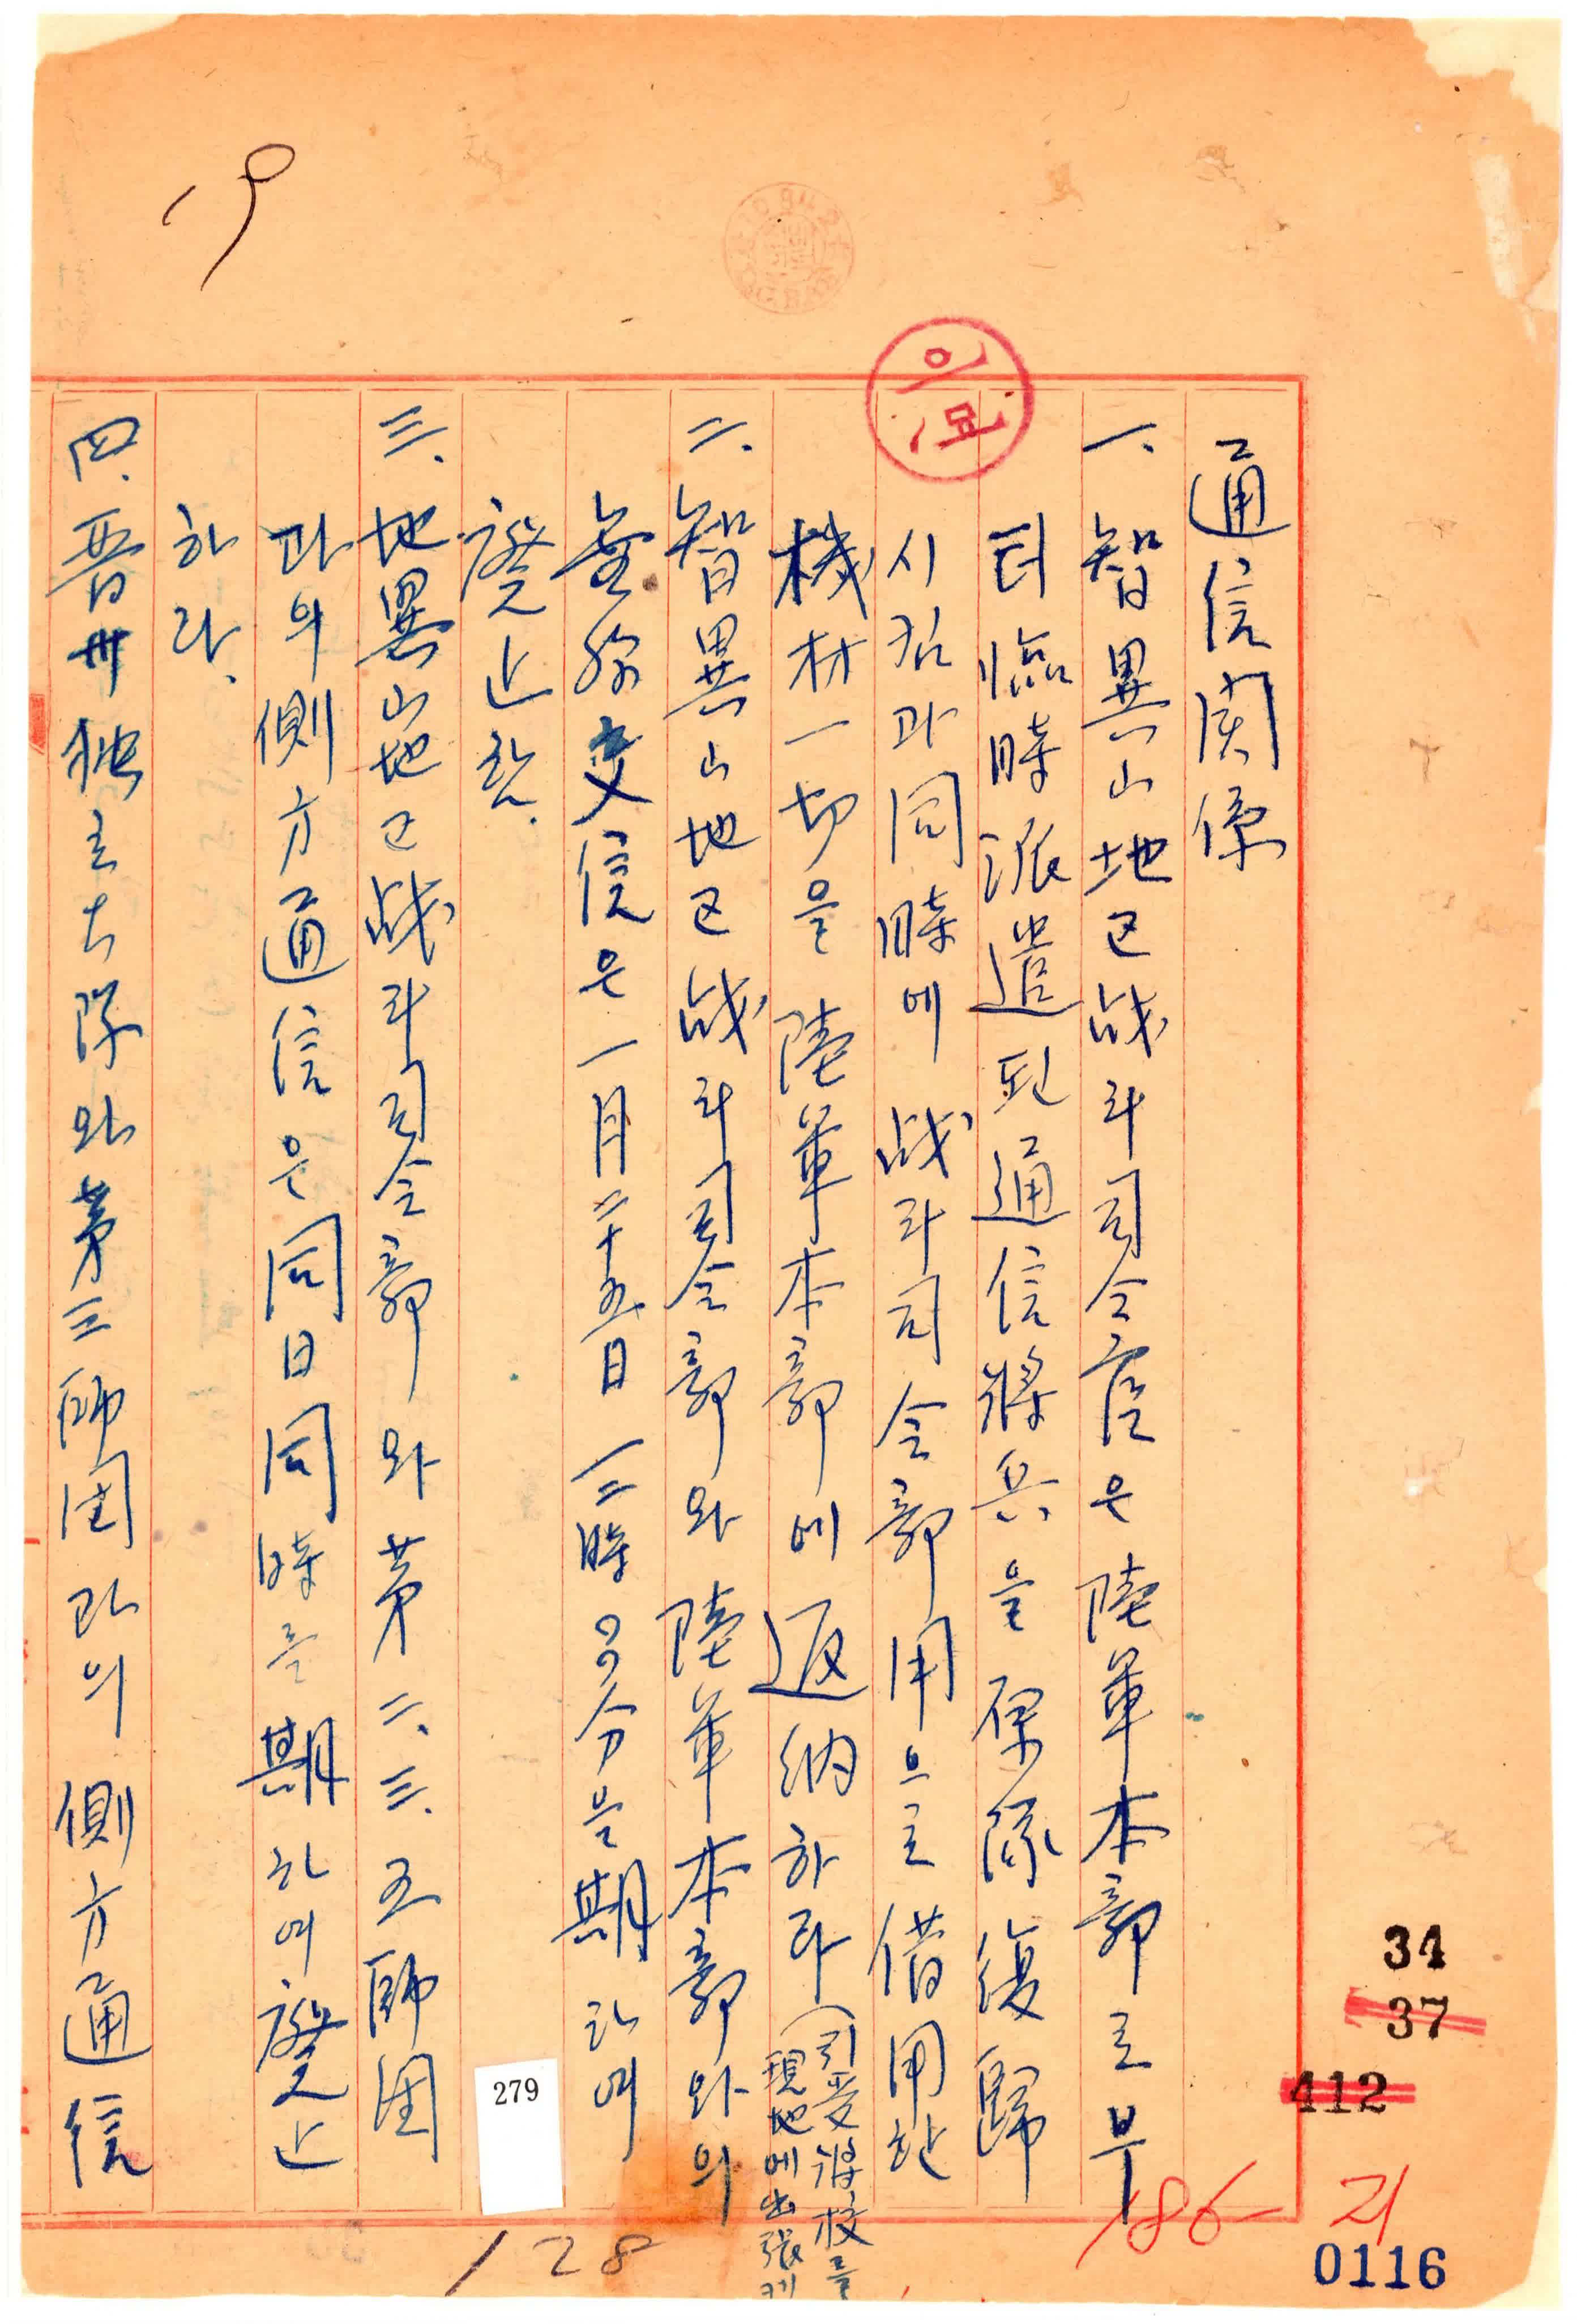 通信関係
一. 智異山地区战斗司令官은 陸軍本部로부
터 臨時派遣된 通信將兵을 原隊復歸
시킴과 同時에 战斗司令部用으로 借用한
機材一切을 陸軍本部에 返納하라 (引受將校를
現地에 出張케
二. 智異山地区战斗司令部와 陸軍本部와의
無線交信은 一月二十五日 一二時〇〇分을 期하여
廢止함.
三. 地異山地区战斗司令部와 第二、三、五師団
과의 側方通信은 同日同時를 期하여 廢止
하라.
四. 晋州独立大隊와 第三師団과의 側方通信
34
37
412
186
21
0116
279
128